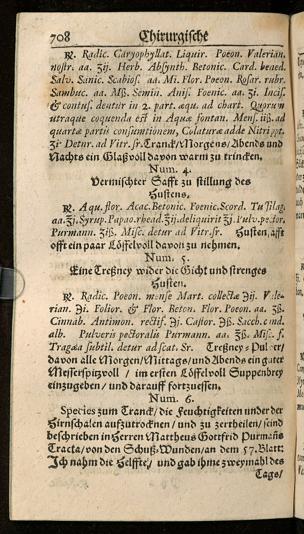 708 Chirurgische
℞. Radic. Caryophyllat. Liquir. Poeon. Valerian.
nostr. aa. ʒij. Herb. Absynth. Betonic. Card. bened.
Salv. Sanic. Scabios. aa. Mi. Flor. Poeon. Rosar. rubr.
Sambuc. aa. Mß. Semin. Anis. Foenic. aa. ʒi. Incis.
& contus. dentur in 2. part. æqu. ad chart. Quorum
utraque coquenda est in Aquæ fontan. Mens. iiß. ad
quartæ partis consumtionem, Colaturæ adde Nitri ppt.
ʒi. Detur ad Vitr. sr. Tranck/Morgens/Abends und
Nachts ein Glaß voll davon warm zu trincken.
Num. 4.
Vermischter Safft zu stillung des
Hustens.
℞. Aqu. flor. Acac. Betonic. Poenic. Scord. Tussilag.
aa. ʒi. Syrup. Papav. rhead. ʒij. deliquirit ʒj. Pulv. pector.
Purmann. ʒiß. Misc. detur ad Vitr. sr. Husten, safft
offt ein paar Löffelvoll davon zu nehmen.
Num. 5.
Eine Tresney wider die Gicht und strenges
Husten.
℞. Radic. Poeon. mense Mart. collectæ ʒij. Vale-
rian. ʒi. Folior. & Flor. Beton. Flor. Poeon. aa. ʒß.
Cinnab. Antimon. rectif. ʒi. Castor. ʒß. Sacch. cand.
alb. Pulveris pectoralis Purmann. aa. ʒß. Misc. f.
Tragæa subtil. detur ad scat. Sr. Tresney-Pulver/
davon alle Morgen/Mittags/und Abends ein guter
Messerspitzvoll / im ersten Löffelvoll Suppenbrey
einzugeben / und darauff fortzuessen.
Num. 6.
Species zum Tranck/ die Feuchtigkeiten under der
Hirnschalen aufzutrocknen / und zu zertheilen/ seind
beschrieben in Herren Mattheus Gottfrid Purmañs
Tractat, von den Schuß-Wunden/an dem 57. Blatt:
Ich nahm die Helffte/ und gab ihme zweymahl des
Tags/